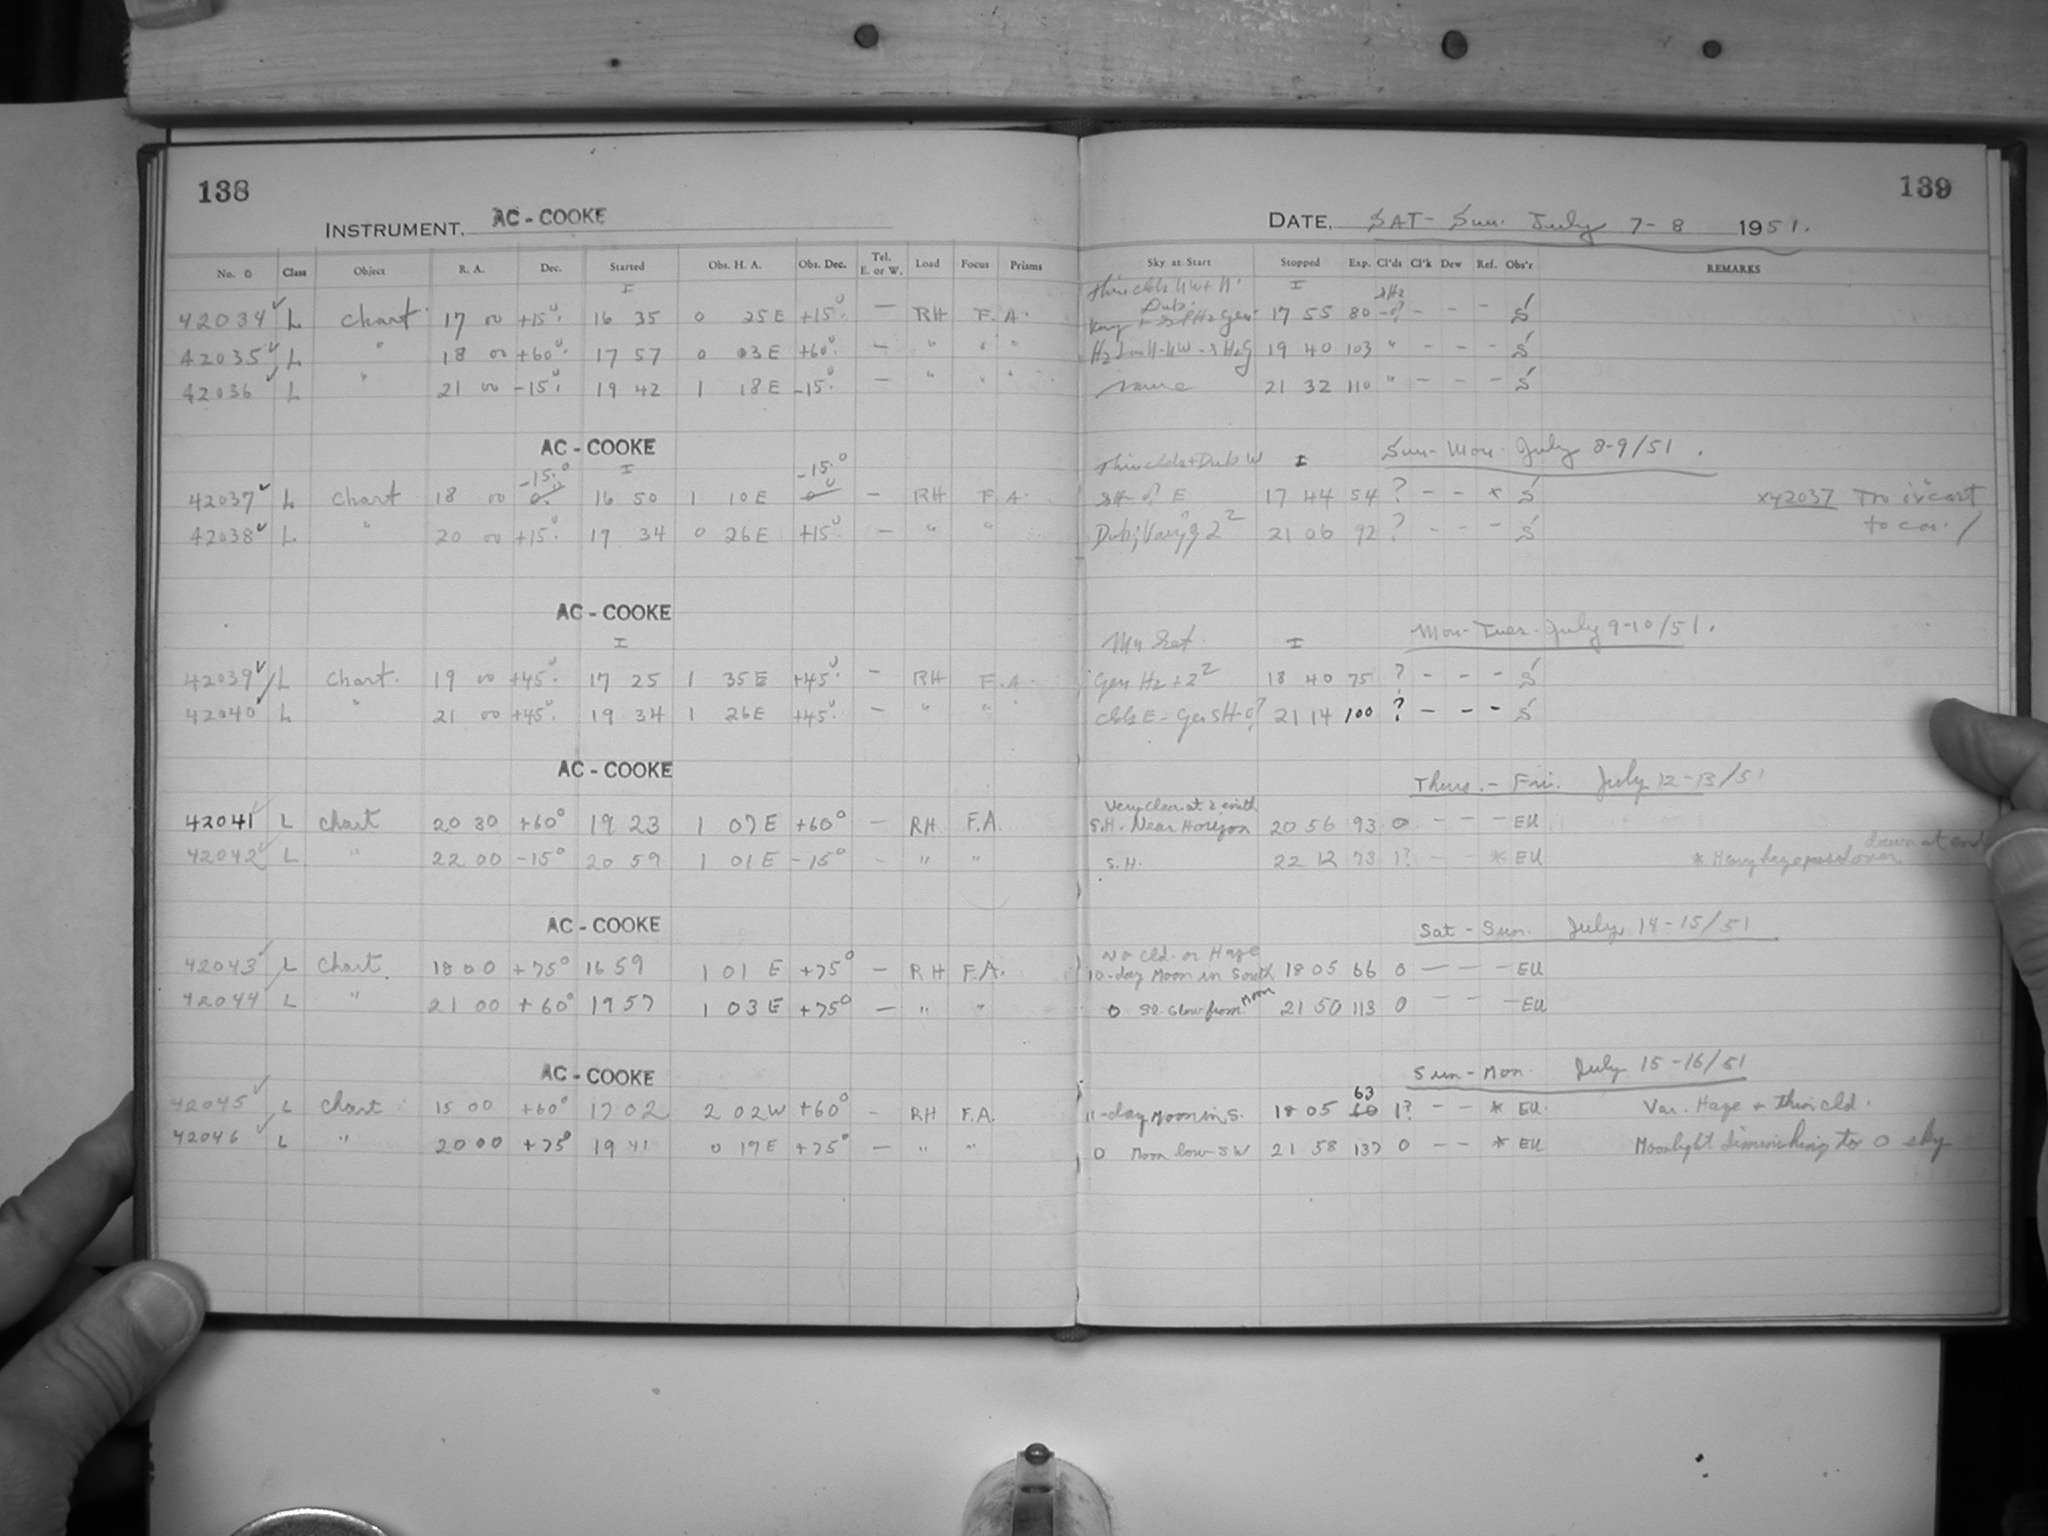 138
139
INSTRUMENT, AC - COOKE
DATE, SAT - Sun. July 7 - 8 1951.
No. Class Object R. A. Dec. Started Obs. H. A. Obs. Dec. Tel. E. or W. Load Focus Prisms Sky at Start Stopped Exp. Cl'ds Cl'k Dew Ref. Obs'r REMARKS
42034 L Chart 17 00 +15° 16 35 0 25 E +15° — RH F.A. 17 55 80 - - - S
42035 L " 18 00 +60° 17 57 0 03 E +60° — " " " 19 40 103 " - - - S
42036 L " 21 00 -15° 19 42 1 18 E -15° — " " " same 21 32 110 " - - - S
AC - COOKE
Sun - Mon. July 8-9/51.
Thin clds + Dub W
-15.° -15.°
42037 L Chart 18 00 16 50 1 10 E - RH F.A. 17 44 54 ? - - * S x42037
42038 L " 20 00 +15° 19 34 0 26 E +15° — " " 21 06 92 ? - - - S
AC - COOKE
Mon - Tues. July 9-10/51.
Mn Set.
42039 L Chart. 19 00 +45° 17 25 1 35 E +45° — RH F.A. Gen Hz + 2² 18 40 75 ? - - - S
42040 L " 21 00 +45° 19 34 1 26 E +45° - " " 21 14 100 ? - - - S
AC - COOKE
Thurs. - Fri. July 12 - 13/51
Very clear at zenith
42041 L Chart 20 30 +60° 19 23 1 07 E +60° — RH F.A. S.H. Near Horizon 20 56 93 0 - - - EU
dawn at end
42042 L " 22 00 -15° 20 59 1 01 E -15° - " " S.H. 22 12 73 1? - - * EU * Heavy haze passed over
AC - COOKE
Sat - Sun. July 14 - 15/51
No Cld. or Haze
42043 L Chart 18 00 +75° 16 59 1 01 E +75° — RH F.A. 10-day Moon in South 18 05 66 0 - - - EU
42044 L " 21 00 +60° 19 57 1 03 E +75° — " " 0 Sl. Glow from Moon 21 50 113 0 - - - EU
AC - COOKE
Sun - Mon. July 15 - 16/51
63
42045 L Chart 15 00 +60° 17 02 2 02 W +60° - RH F.A. 11-day Moon in S. 18 05 60 1? - - * EU. Var. Haze + thin cld.
42046 L " 20 00 +75° 19 41 0 17 E +75° — " " 0 Moon low SW 21 58 137 0 - - * EU Moonlight diminishing to 0 sky